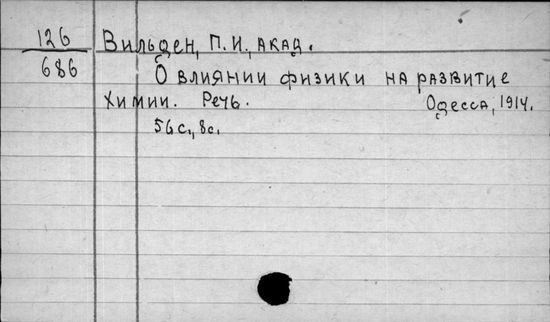 126 Вильден, П. И., акад.
686 О влиянии физики на развитие
химии. Речь. Одесса, 1914.
56 с., 8с.